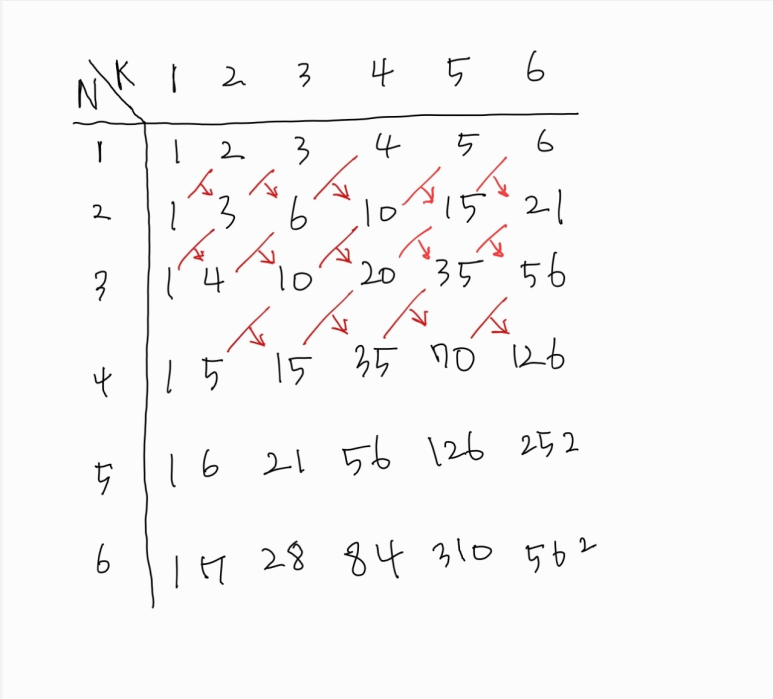 N K 1 2 3 4 5 6
1 1 2 3 4 5 6
2 1 3 6 10 15 21
3 1 4 10 20 35 56
4 1 5 15 35 70 126
5 1 6 21 56 126 252
6 1 7 28 84 310 562